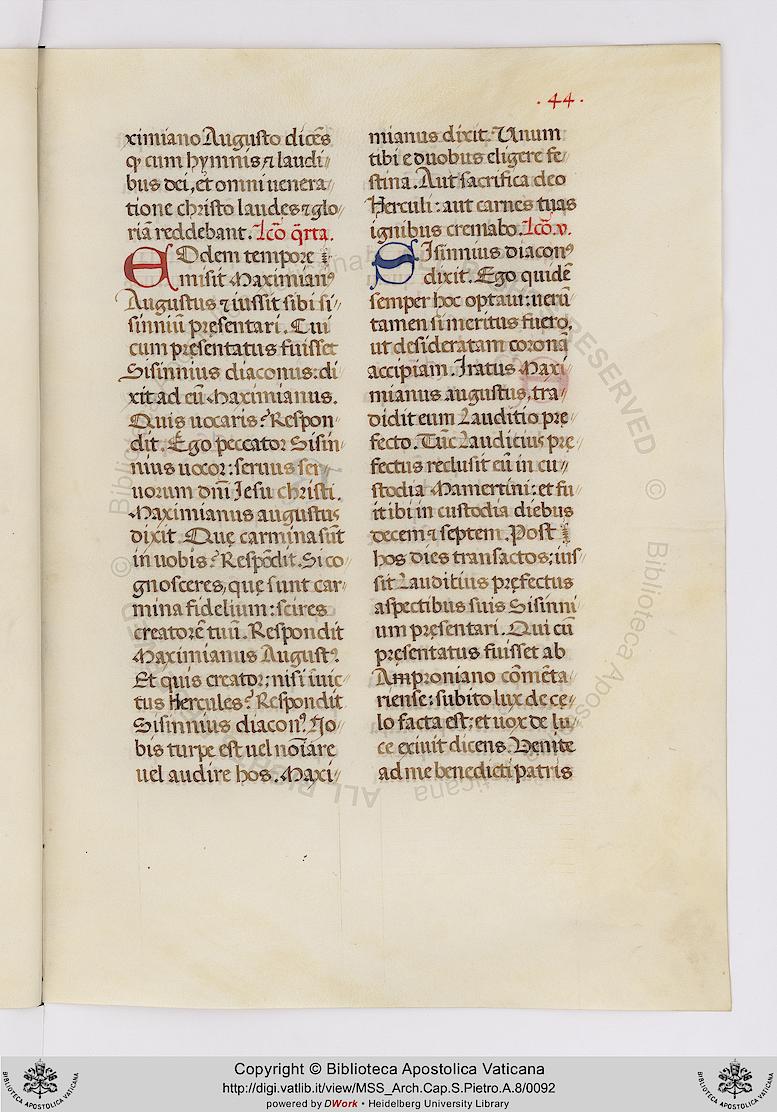 · 44 ·
ximiano Augusto dicẽs
ꝙ cum hymnis ⁊ laudi
bus dei, et omni uenera
tione christo laudes ⁊ glo
riã reddebant. Lcõ q̃rta.
EOdem tempore
misit Maximianꝰ
Augustus ⁊ iussit sibi si
sinniũ pręsentari. Cui
cum pręsentatus fuisset
Sisinnius diaconus: di
xit ad eũ Maximianus.
Quis uocaris? Respon
dit. Ego peccator Sisin
nius uocor: seruus ser
uorum dnĩ Jesu christi.
Maximianus augustus
dixit. Quę carmina sũt
in uobis? Respõdit. Si co
gnosceres, quę sunt car
mina fidelium: scires
creatorẽ tuũ. Respondit
Maximianus Augustꝰ.
Et quis creator; nisi ĩuic
tus Hercules? Respondit
Sisinnius diaconꝰ. No
bis turpe est uel noĩare
uel audire hos. Maxi
mianus dixit. Unum
tibi e duobus eligere fe
stina. Aut sacrifica deo
Herculi: aut carnes tuas
ignibus cremabo. Lcõ. v.
SIsinnius diaconꝰ
dixit. Ego quidẽ
semper hoc optaui: uerũ
tamen si meritus fuero,
ut desideratam coronã
accipiam. Iratus Maxi
mianus augustus, tra
didit eum Lauditio pre
fecto. Tũc Laudicius pre
fectus reclusit eũ in cu
stodia Mamertini: et fu
it ibi in custodia diebus
decem ⁊ septem. Post
hos dies transactos; ius
sit Lauditius pręfectus
aspectibus suis Sisinni
um pręsentari. Qui cũ
pręsentatus fuisset ab
Amproniano cõmẽta
riense: subito lux de cę
lo facta est; et uox de lu
ce exiuit dicens. Venite
ad me benedicti patris
Copyright © Biblioteca Apostolica Vaticana
http://digi.vatlib.it/view/MSS_Arch.Cap.S.Pietro.A.8/0092
powered by DWork • Heidelberg University Library